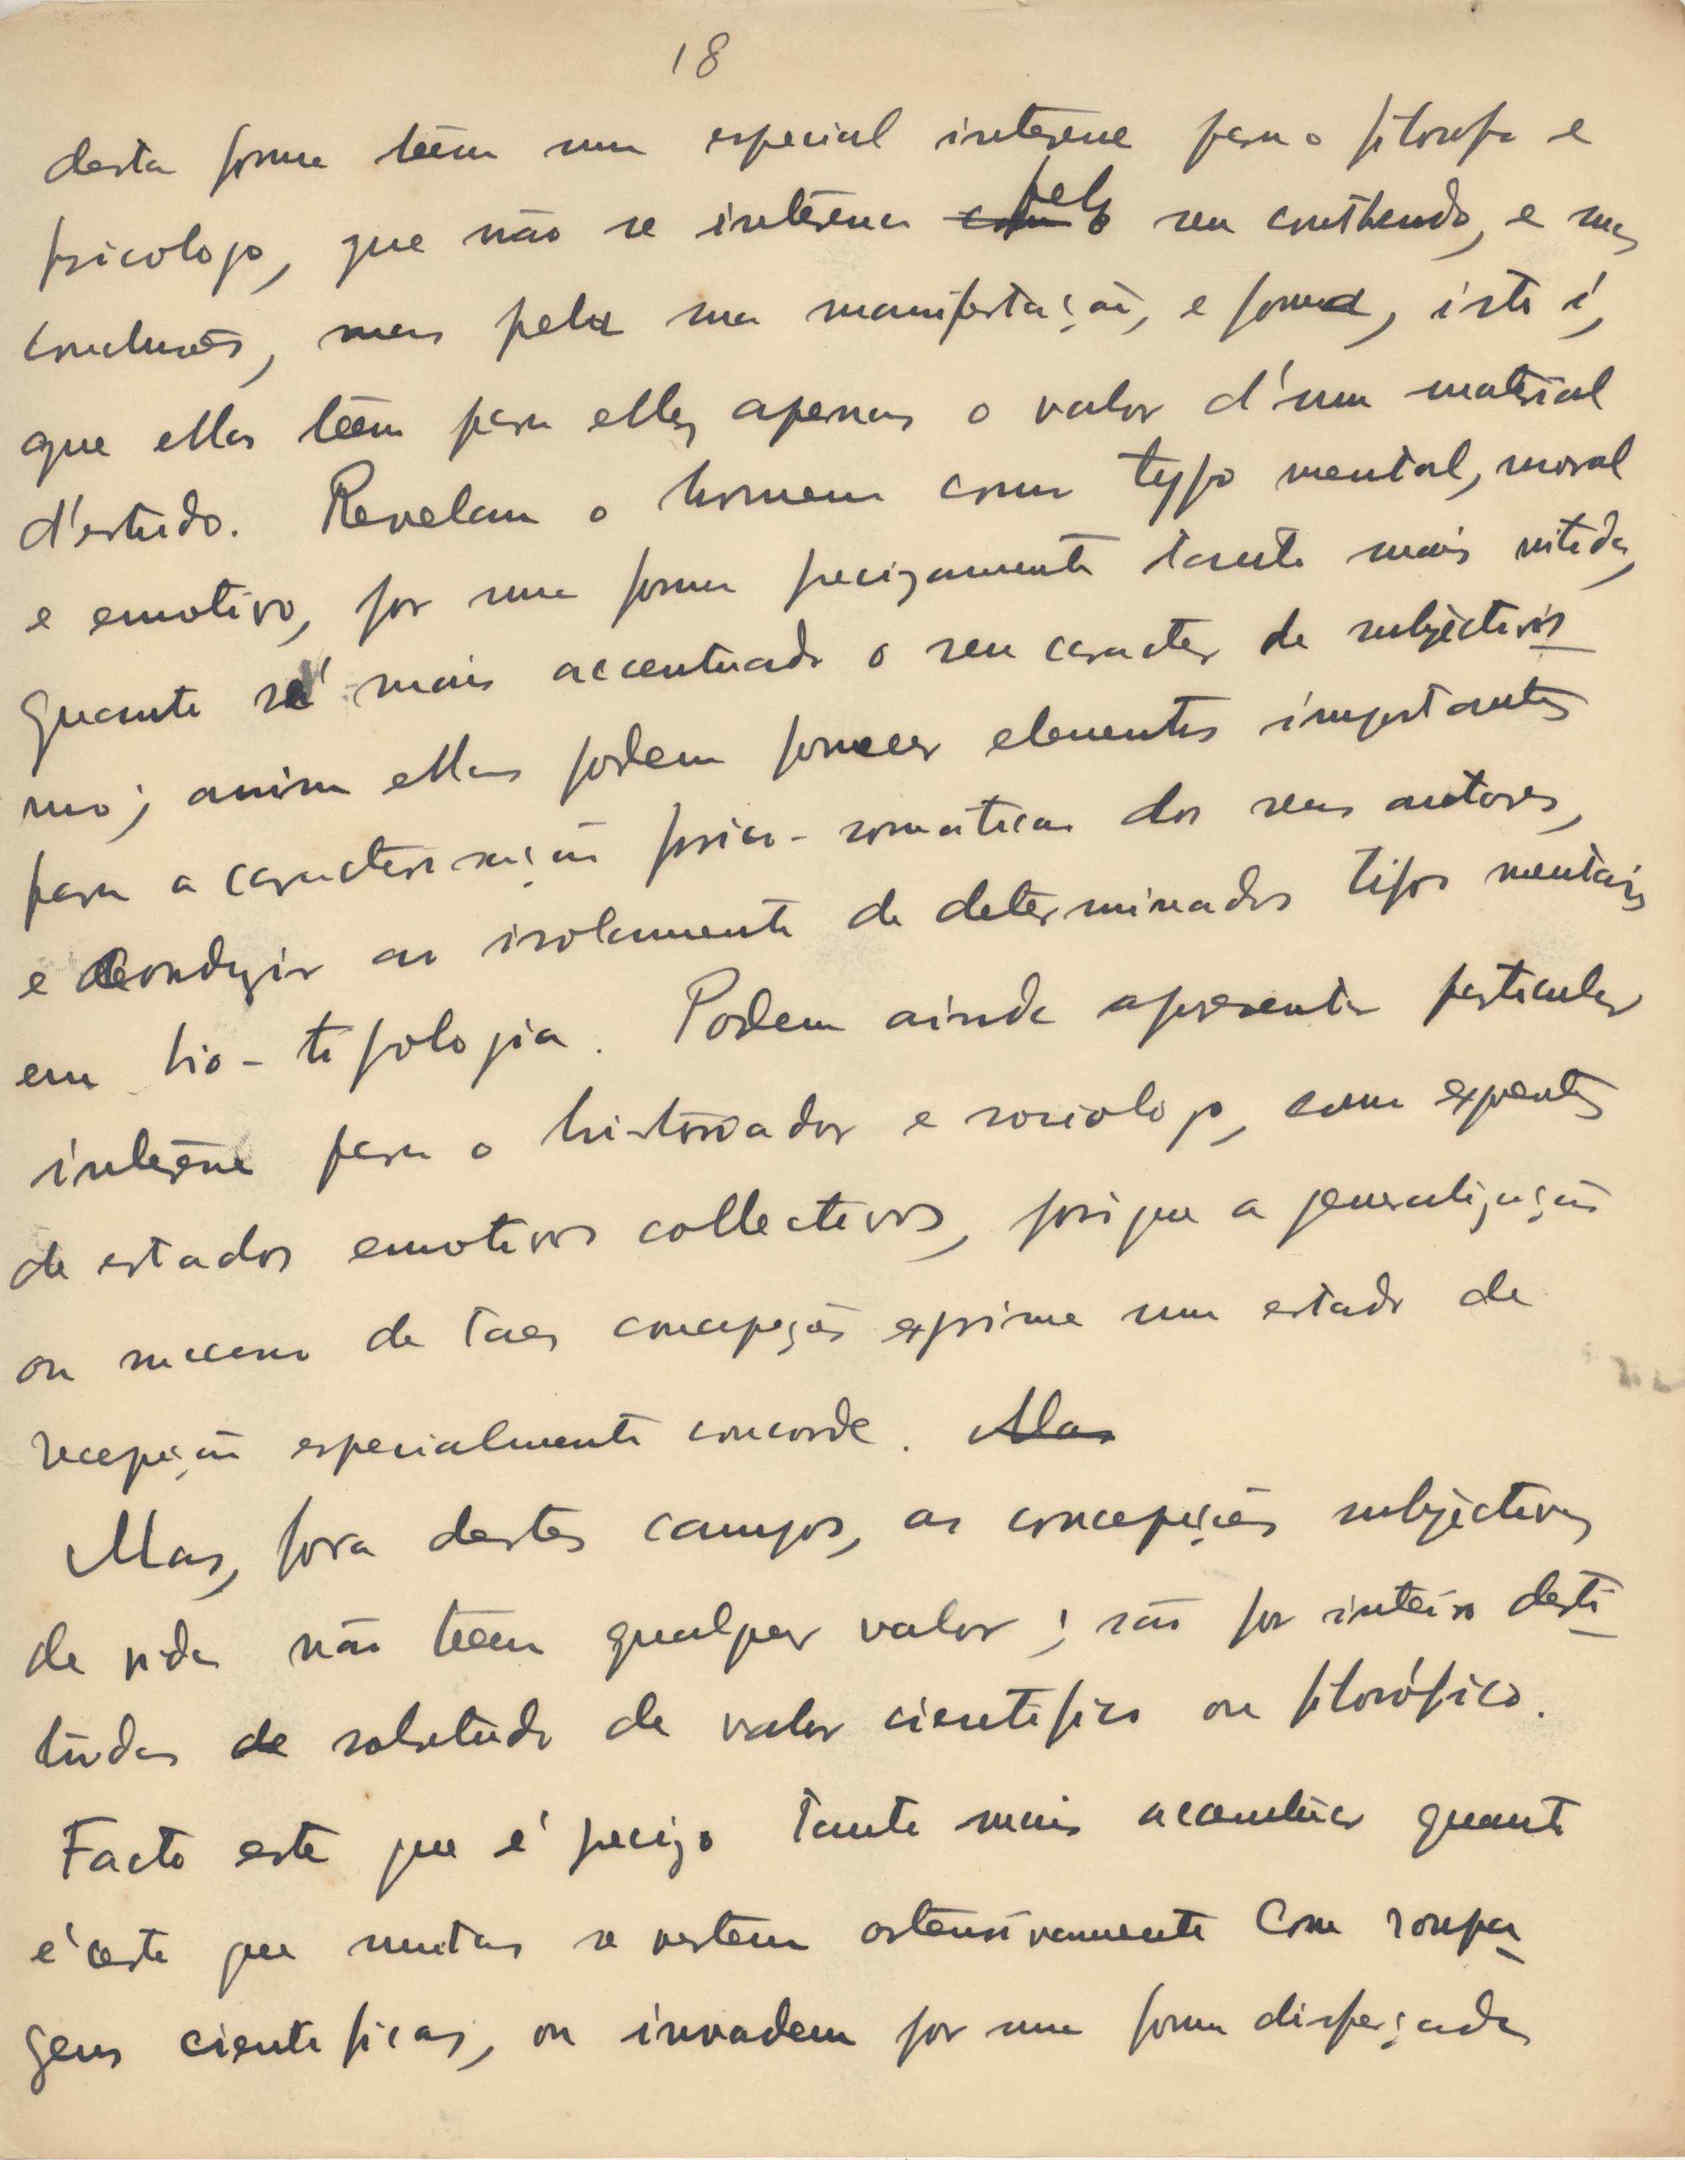 18
desta forma têem um especial interesse para o filosofo e
psicologo, que não se interessa com pelo seu conthendo, e suas
conclusões, mas pela sua manifestação, e forma, isto é,
que ellas têem para elles apenas o valor d'um material
d'estudo. Revelam o homem como typo mental, moral
e emotivo, por uma forma precizamente tanto mais nitida,
quanto é mais accentuado o seu caracter de subjectivis
mo; assim ellas podem fornecer elementos importantes
para a caracterisação psico-somaticas dos seus autores,
e conduzir ao isolamento de determinados tipos mentais
em bio-tipologia. Podem ainda apresentar particular
interesse para o historiador e sociologo, como expoentes
de estados emotivos collectivos, porque a generalização
ou successo de taes concepções exprime um estado de
recepção especialmente concorde. Mas
Mas, fora destes campos, as concepções subjectivas
de vida não têem qualquer valor; são por inteiro desti
tuidas de sobretudo de valor cientifico ou filosófico.
Facto este que é precizo tanto mais accentuar quanto
é certo que muitas se vestem ostensivamente com roupa
gens cientificas, ou invadem por uma forma disfarçada